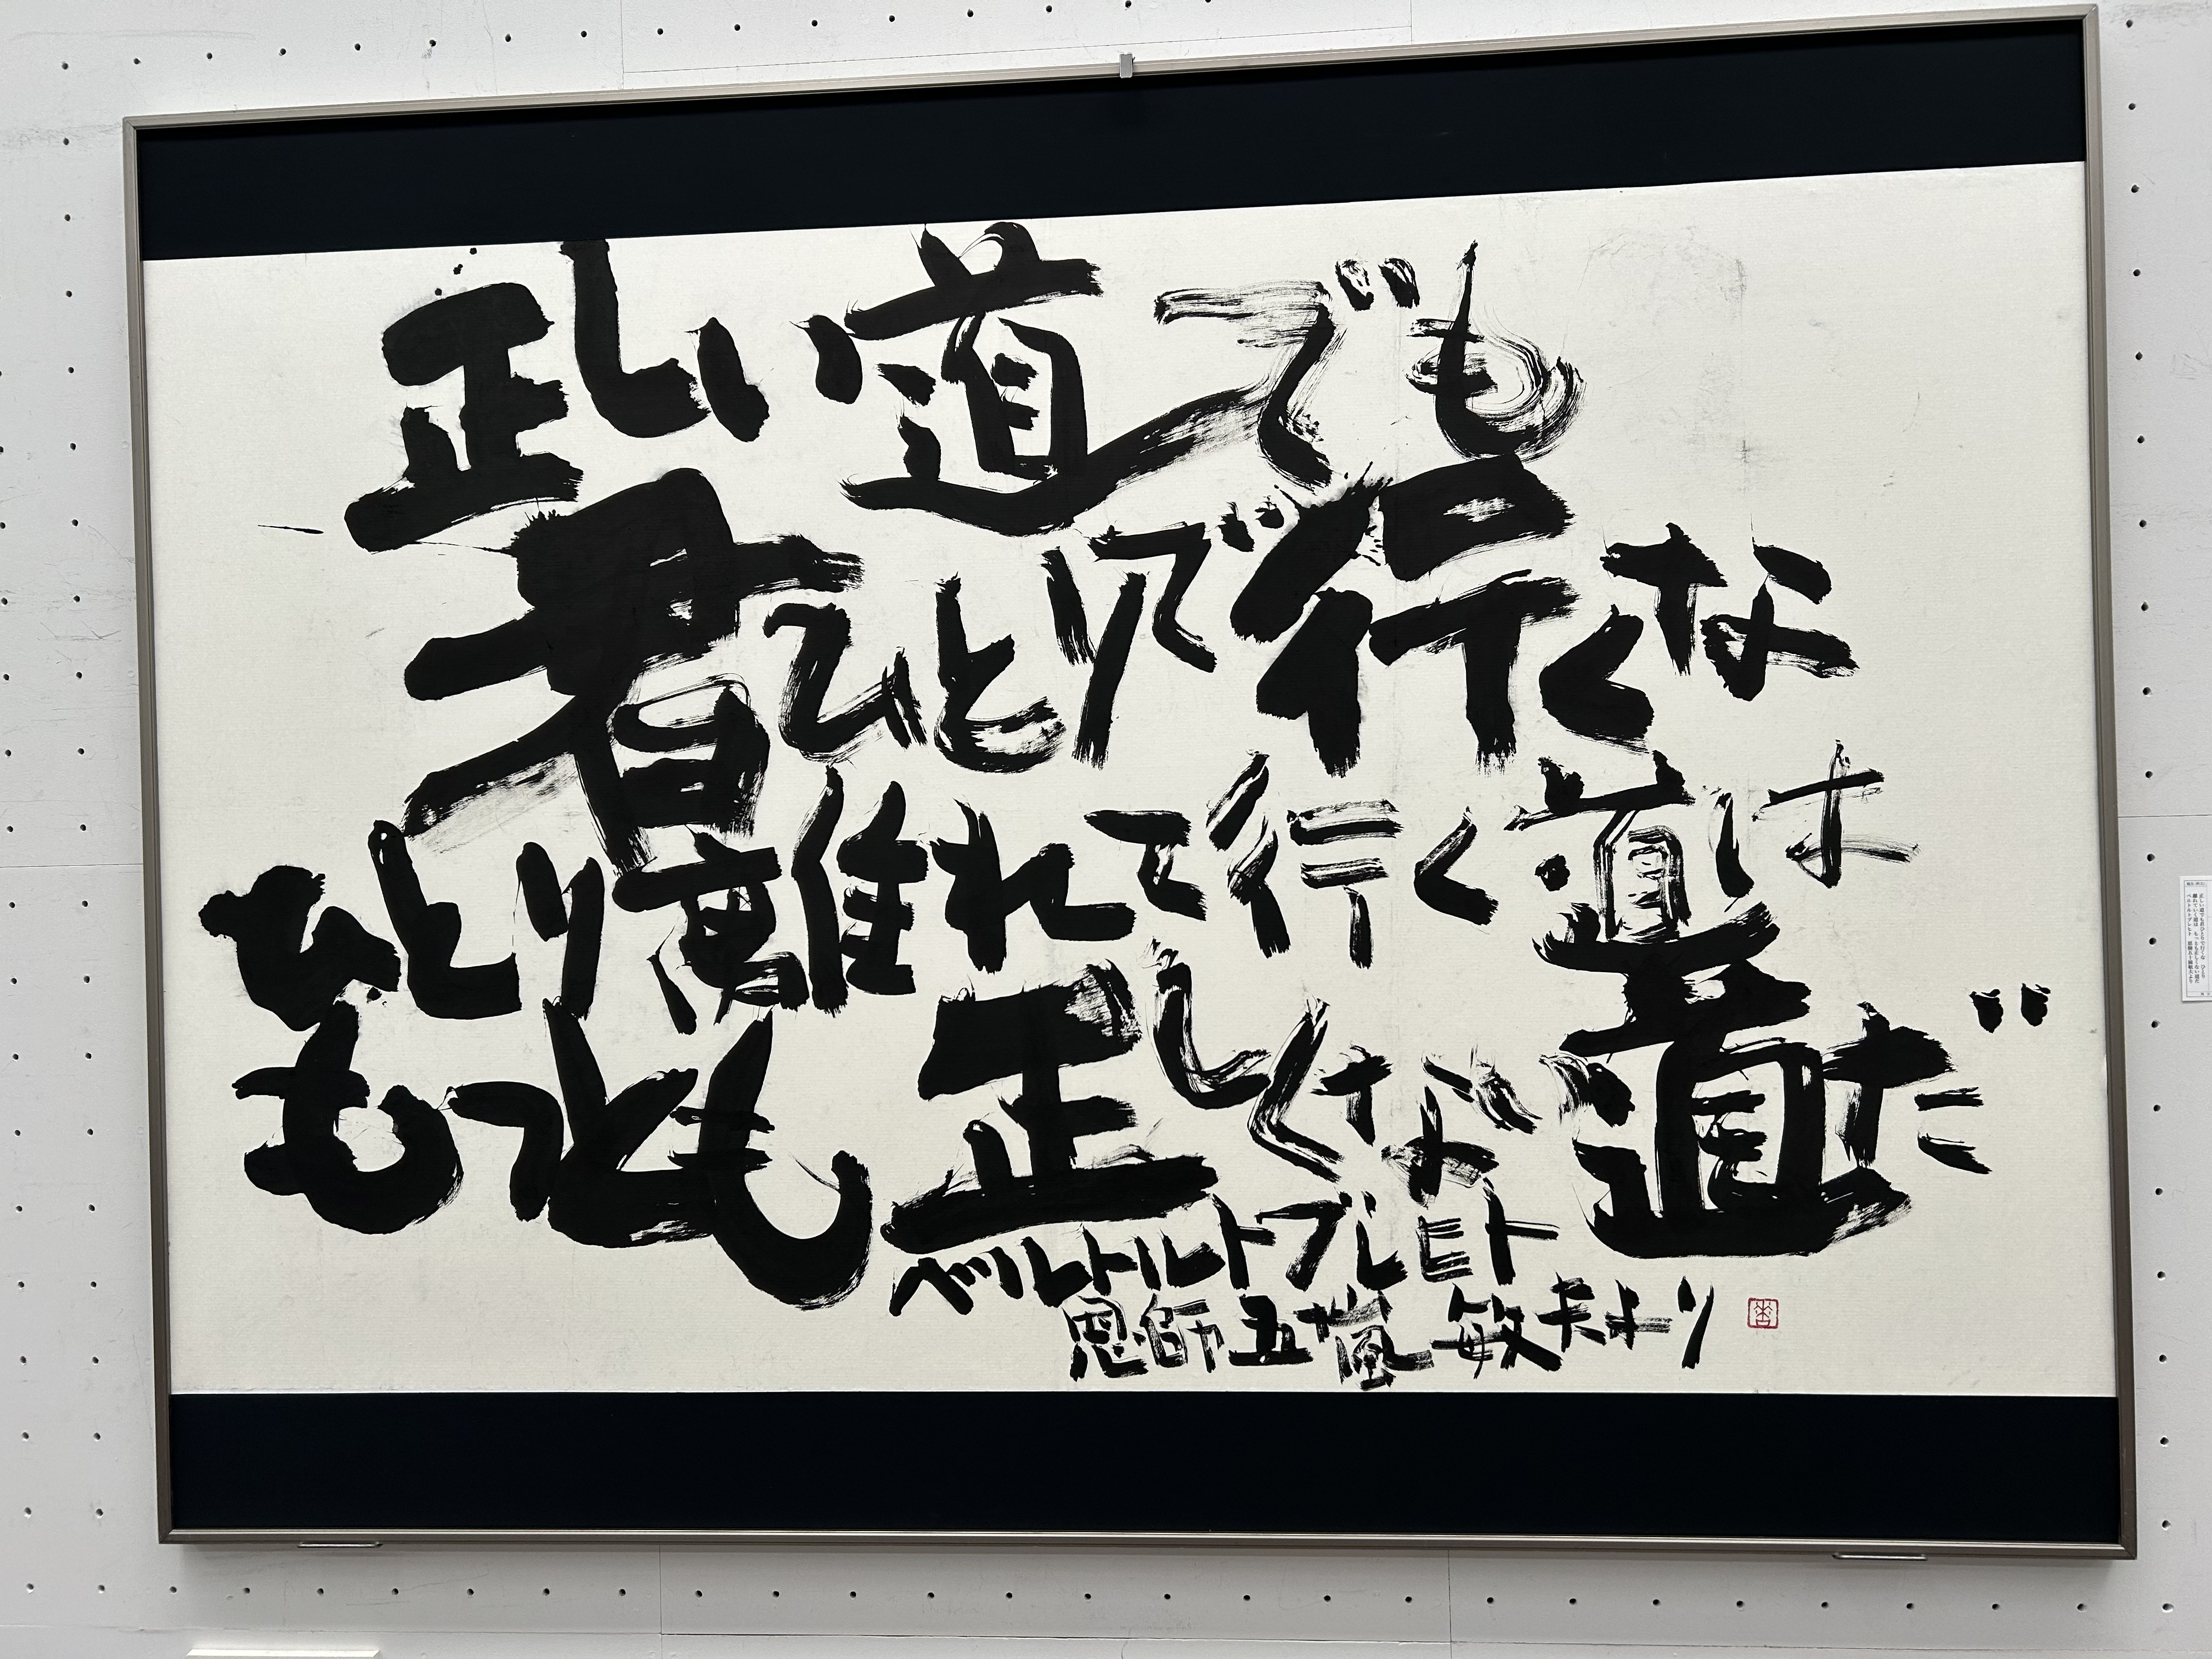 正しい道でも
君ひとりで行くな
ひとり離れて行く道は
もっとも正しくない道だ
ベルトルトブレヒト
恩師五十嵐敏夫より